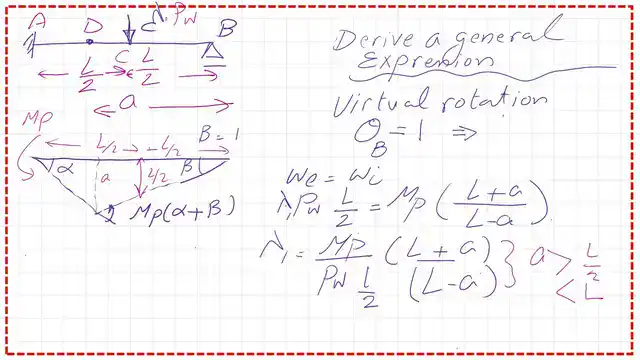 A D λ₁Pw B
C
L/2 L/2
a
Mp
L/2 L/2 B = 1
α a L/2 β
2 Mp(α+β)
Derive a general
Expression
Virtual rotation
θB = 1 ⇒
We = Wi
λ₁Pw L/2 = Mp (L+a/L-a)
λ₁ = Mp/(Pw L/2) (L+a)/(L-a) } a > L/2
< L